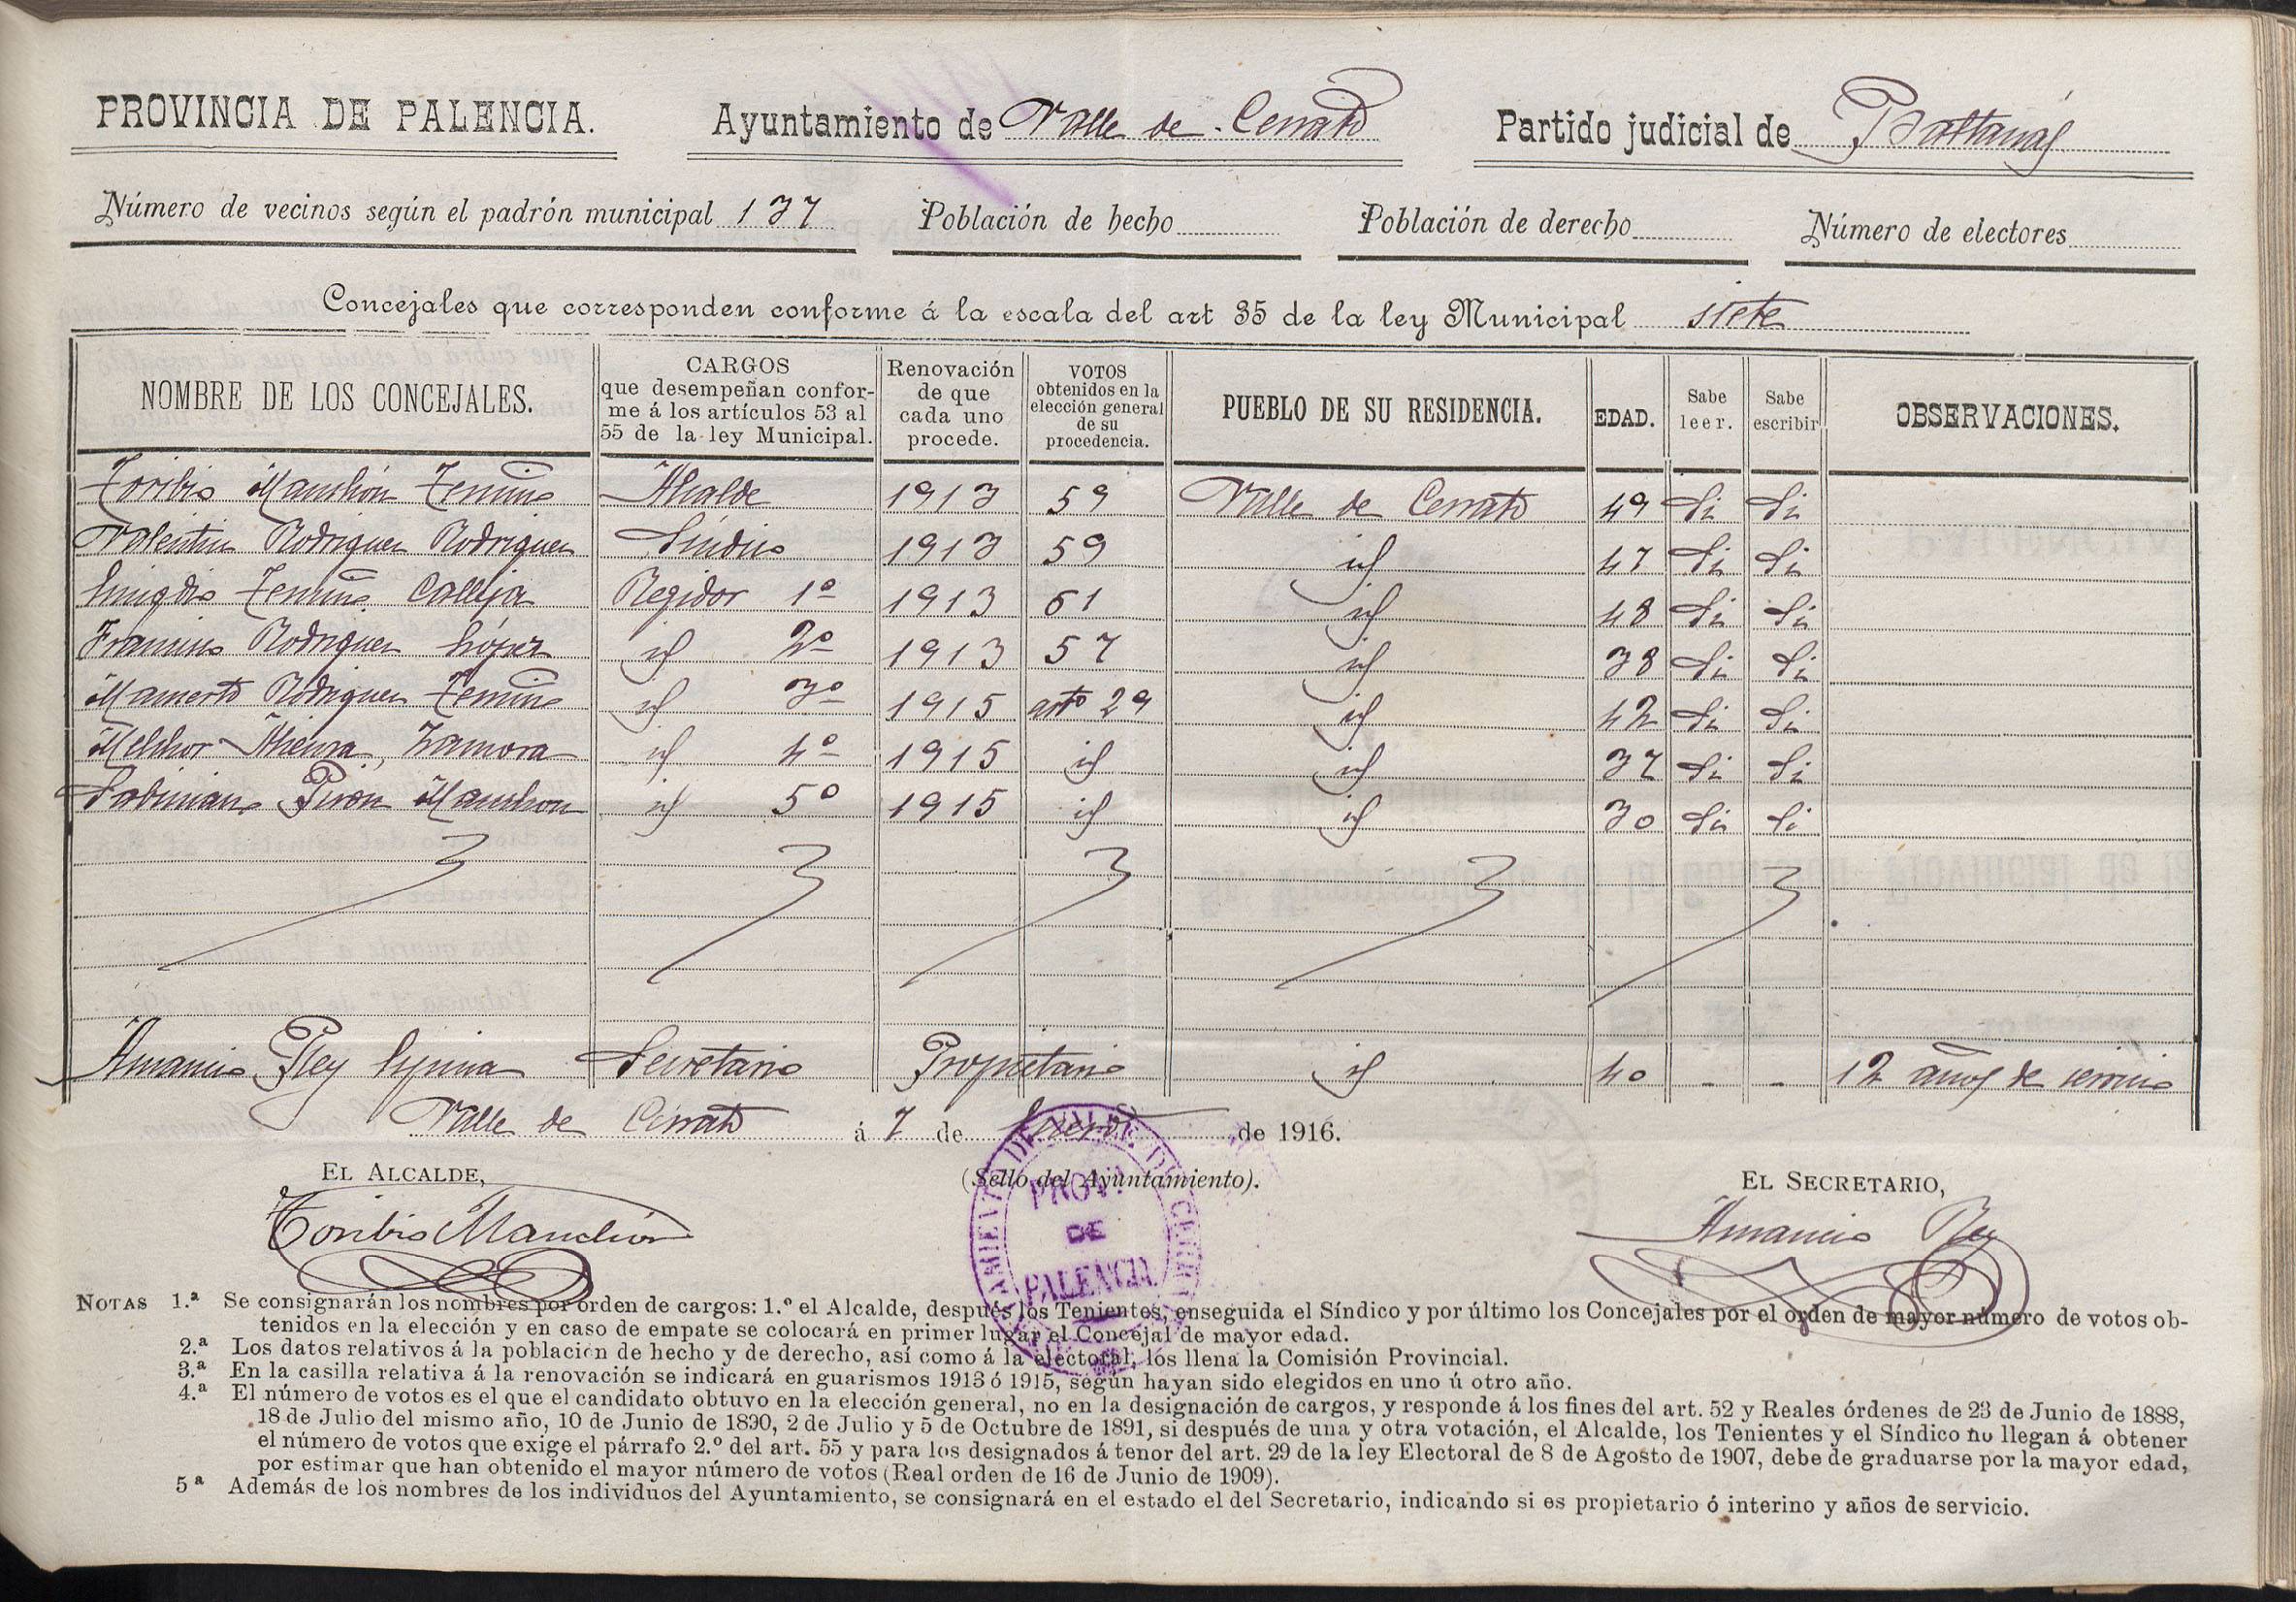 PROVINCIA DE PALENCIA. Ayuntamiento de Valle de Cerrato Partido judicial de Baltanás
Número de vecinos según el padrón municipal 137 Población de hecho Población de derecho Número de electores
Concejales que corresponden conforme á la escala del art 35 de la ley Municipal siete
NOMBRE DE LOS CONCEJALES. CARGOS que desempeñan conforme á los artículos 53 al 55 de la ley Municipal. Renovación de que cada uno procede. VOTOS obtenidos en la elección general de su procedencia. PUEBLO DE SU RESIDENCIA. EDAD. Sabe leer. Sabe escribir OBSERVACIONES.
Toribio Manchón Temiño Alcalde 1913 59 Valle de Cerrato 49 Si Si
Valentin Rodriguez Rodriguez Síndico 1913 59 id 47 Si Si
Emigdio Temiño Calleja Regidor 1º 1913 61 id 48 Si Si
Rodriguez López id 2º 1913 57 id 38 Si Si
Mamerto Rodriguez Temiño id 3º 1915 artº 29 id 42 Si Si
Melchor Atienza Zamora id 4º 1915 id id 37 Si Si
Sabiniano Pirón Manchon id 5º 1915 id id 30 Si Si
Amancio Rey Secretario Propietario id 40 - - 12 años de servicio
Valle de Cerrato á 7 de Enero de 1916.
EL ALCALDE, (Sello del Ayuntamiento). EL SECRETARIO,
PROV.ª
DE
PALENCIA
Toribio Manchón Amancio Rey
NOTAS 1.ª Se consignarán los nombres por orden de cargos: 1.º el Alcalde, después los Tenientes, enseguida el Síndico y por último los Concejales por el orden de mayor número de votos ob-
tenidos en la elección y en caso de empate se colocará en primer lugar el Concejal de mayor edad.
2.ª Los datos relativos á la población de hecho y de derecho, así como á la electoral, los llena la Comisión Provincial.
3.ª En la casilla relativa á la renovación se indicará en guarismos 1913 ó 1915, según hayan sido elegidos en uno ú otro año.
4.ª El número de votos es el que el candidato obtuvo en la elección general, no en la designación de cargos, y responde á los fines del art. 52 y Reales órdenes de 23 de Junio de 1888,
18 de Julio del mismo año, 10 de Junio de 1890, 2 de Julio y 5 de Octubre de 1891, si después de una y otra votación, el Alcalde, los Tenientes y el Síndico no llegan á obtener
el número de votos que exige el párrafo 2.º del art. 55 y para los designados á tenor del art. 29 de la ley Electoral de 8 de Agosto de 1907, debe de graduarse por la mayor edad,
por estimar que han obtenido el mayor número de votos (Real orden de 16 de Junio de 1909).
5ª Además de los nombres de los individuos del Ayuntamiento, se consignará en el estado el del Secretario, indicando si es propietario ó interino y años de servicio.